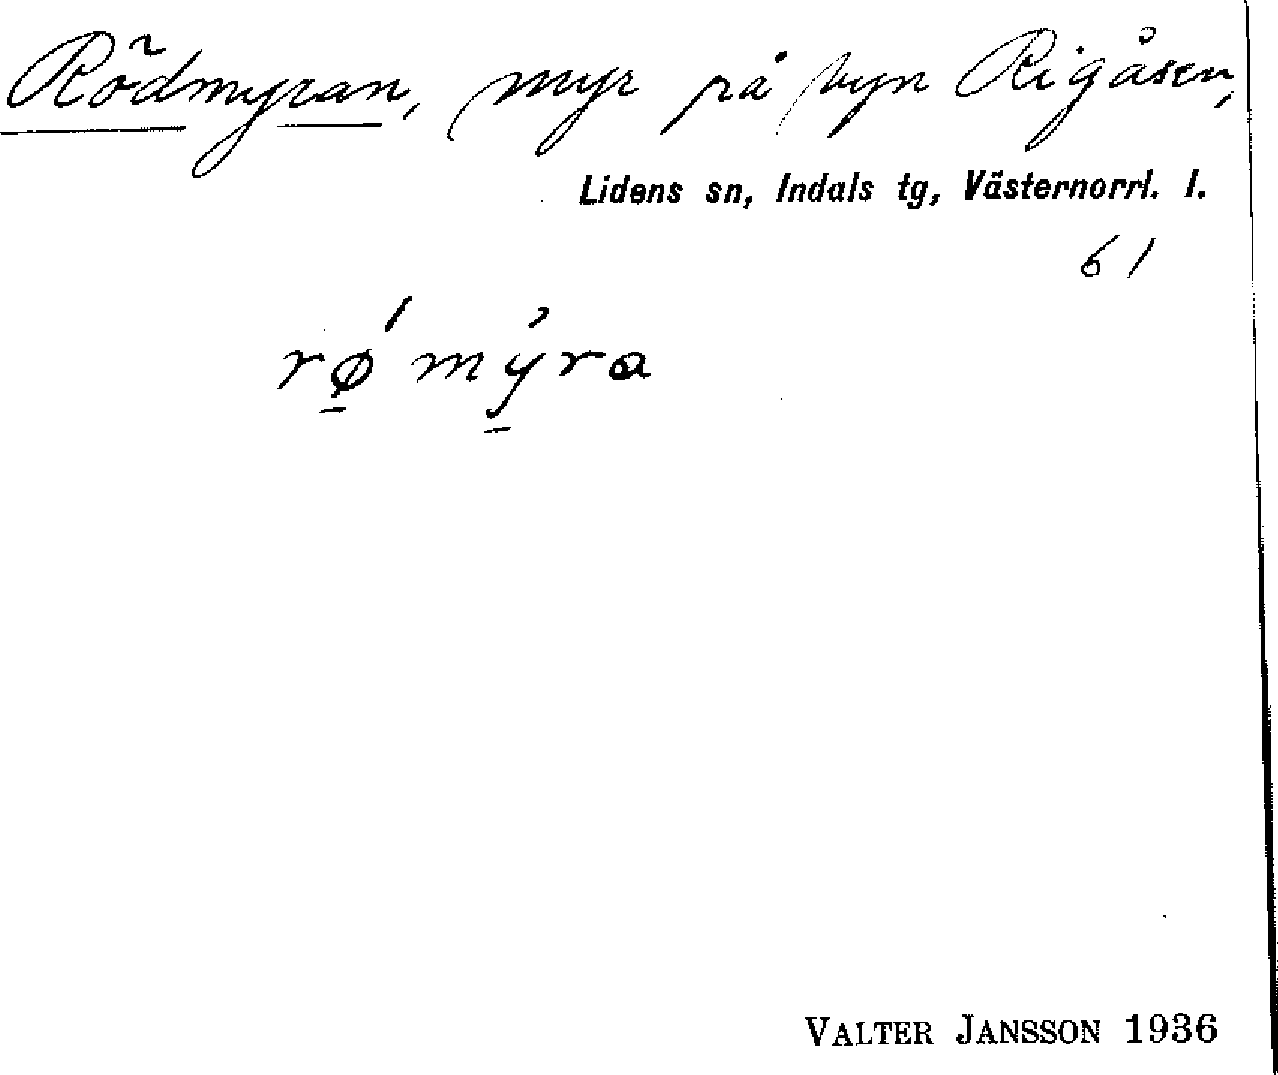 Rödmyran, myr på byn Rigåsen,
Lidens sn, Indals tg, Västernorrl. l.
61
rø̱´ mỳ̱ra
VALTER JANSSON 1936